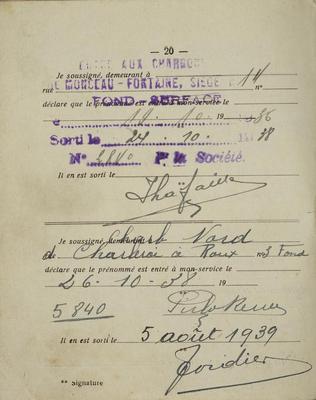 — 20 —
AUX CHARBON
Je soussigné, demeurant à
DE MONCEAU-FONTAINE, SIÈGE 14
rue n°
déclare que le prénommé est entré à mon service le
FOND - SURFACE
10 19 36
Sorti le 27 . 10 . 38
N° P. la Société.
Il en est sorti le
Je soussigné, demeurant Charb Nord
de Charleroi à Roux n°3 Fond
déclare que le prénommé est entré à mon service le
26 - 10 - 38 19
5 840
Il en est sorti le 5 août 1939
** Signature